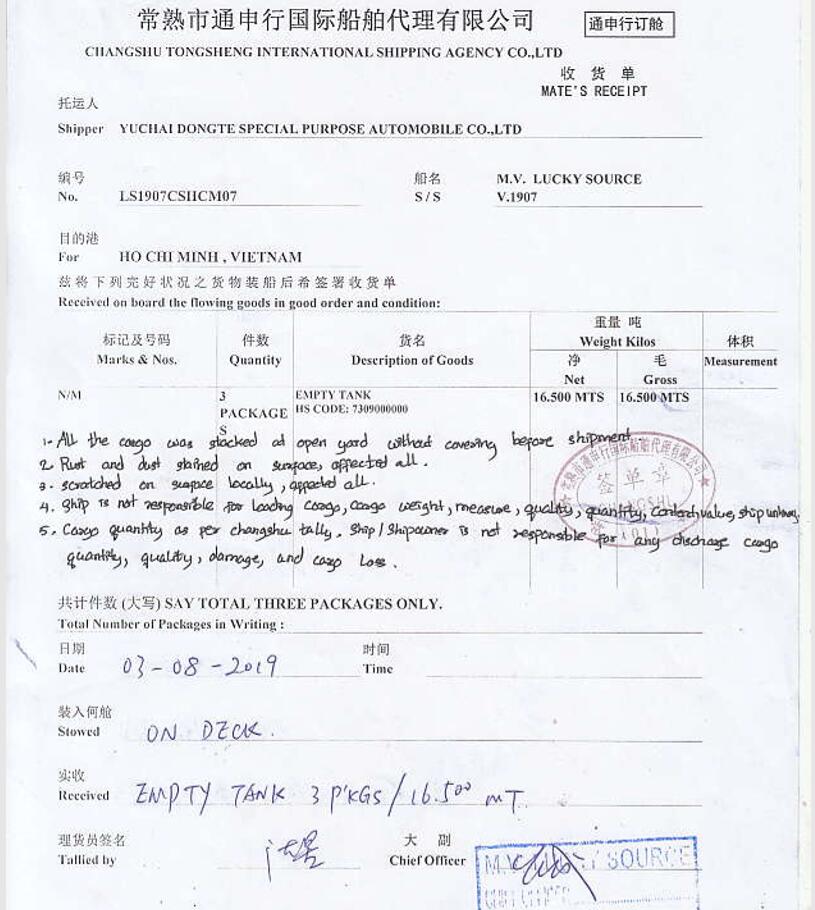 常熟市通申行国际船舶代理有限公司
通申行订舱
CHANGSHU TONGSHENG INTERNATIONAL SHIPPING AGENCY CO.,LTD
收 货 单
MATE'S RECEIPT
托运人
Shipper YUCHAI DONGTE SPECIAL PURPOSE AUTOMOBILE CO.,LTD
编号 船名 M.V. LUCKY SOURCE
No. LS1907CSHCM07 S / S V.1907
目的港
For HO CHI MINH , VIETNAM
兹将下列完好状况之货物装船后希签署收货单
Received on board the flowing goods in good order and condition:
重量 吨
标记及号码 件数 货名 Weight Kilos 体积
Marks & Nos. Quantity Description of Goods 净 毛 Measurement
Net Gross
N/M 3 EMPTY TANK 16.500 MTS 16.500 MTS
PACKAGE HS CODE: 7309000000
S
1. All the cargo was stacked at open yard without covering before shipment.
2. Rust and dust stained on surface, affected all.
3. scratched on surface locally, affected all.
4. ship is not responsible for loading cargo, cargo weight, measure, quality, quantity, content, value, ship
5. Cargo quantity as per changshu tally. Ship/Shipowner is not responsible for any discharge cargo
quantity, quality, damage, and cargo loss.
常熟市通申行国际船舶代理有限公司
签单章
共计件数 (大写) SAY TOTAL THREE PACKAGES ONLY.
Total Number of Packages in Writing :
日期 时间
Date 03-08-2019 Time
装入何舱
Stowed ON DECK.
实收
Received EMPTY TANK 3 P'KGS/16.500 MT.
理货员签名 大 副
Tallied by Chief Officer
M.V. LUCKY SOURCE